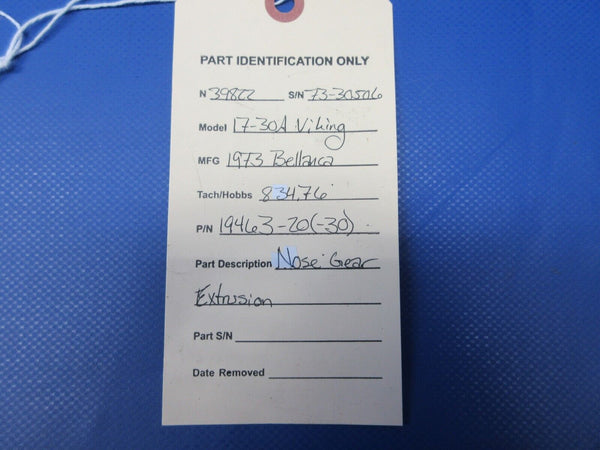 PART IDENTIFICATION ONLY
N 39822 S/N 73-30506
Model 17-30A Viking
MFG 1973 Bellanca
Tach/Hobbs 834.76
P/N 19463-20(-30)
Part Description Nose Gear
Extrusion
Part S/N
Date Removed